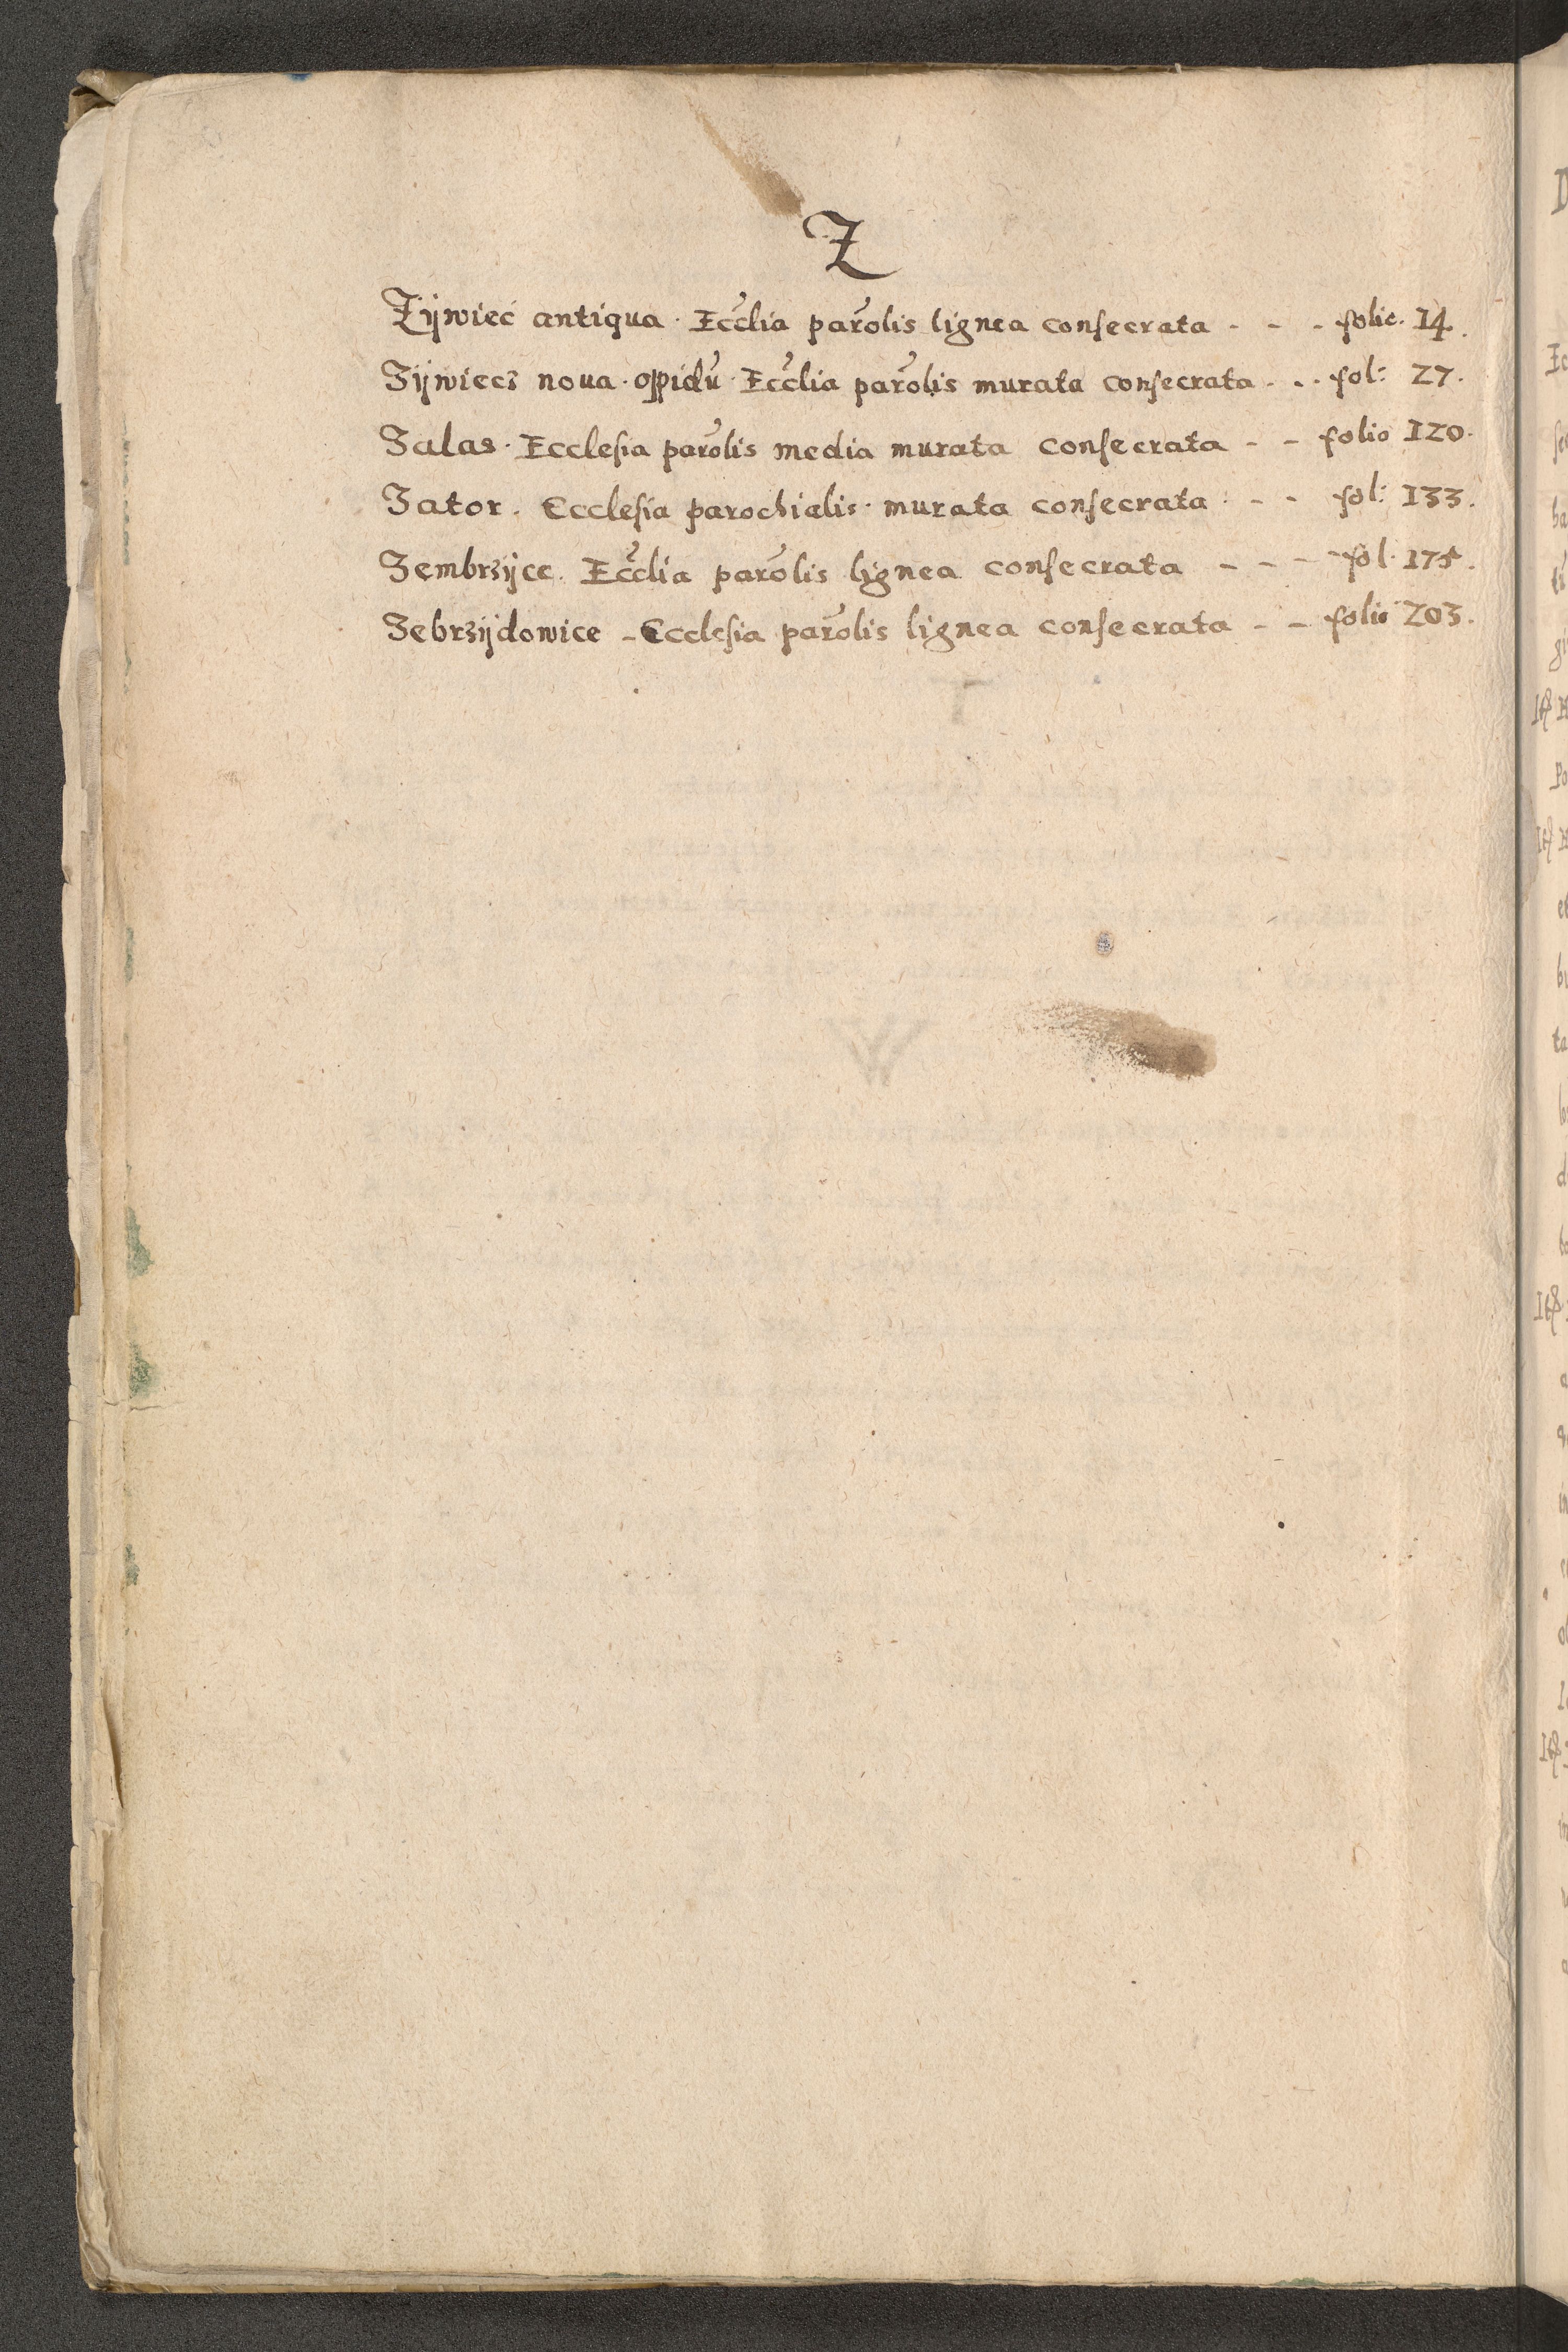 Z
Zÿwiec antiqua. Eccłia parołis lignea consecrata - - - folio. 14.
Zÿwiecz noua. oppidū. Eccłia parołis murata consecrata. - . fol: 27.
Zalas. Ecclesia parołis media murata consecrata - - folio 120.
Zator. Ecclesia parochialis. murata consecrata. - - fol: 133.
Zembrzÿce. Eccłia parołis lignea consecrata - - - fol. 175.
Zebrzÿdowice - Ecclesia parołis lignea consecrata - - folio 203.